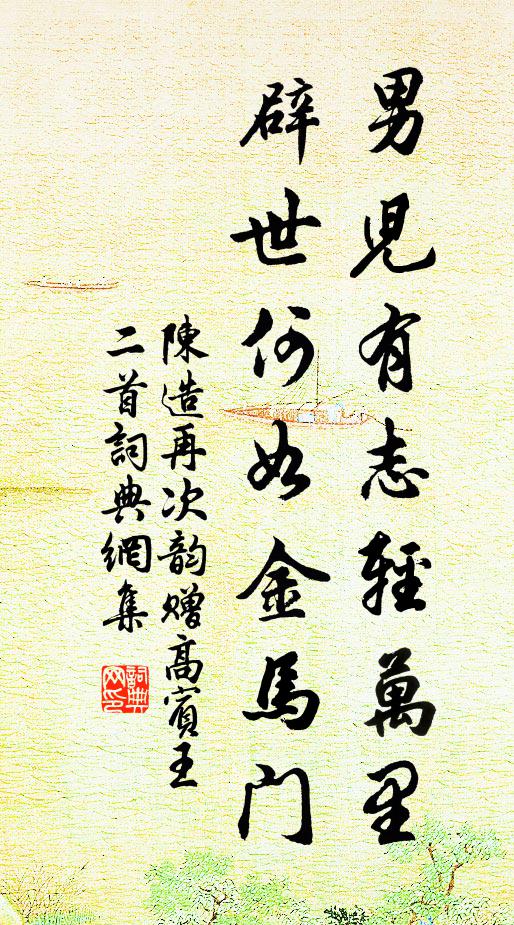 男児有志輕萬里
辟世何如金馬门
陳造再次韵贈高賓王
二首詞典網集
詞典网印